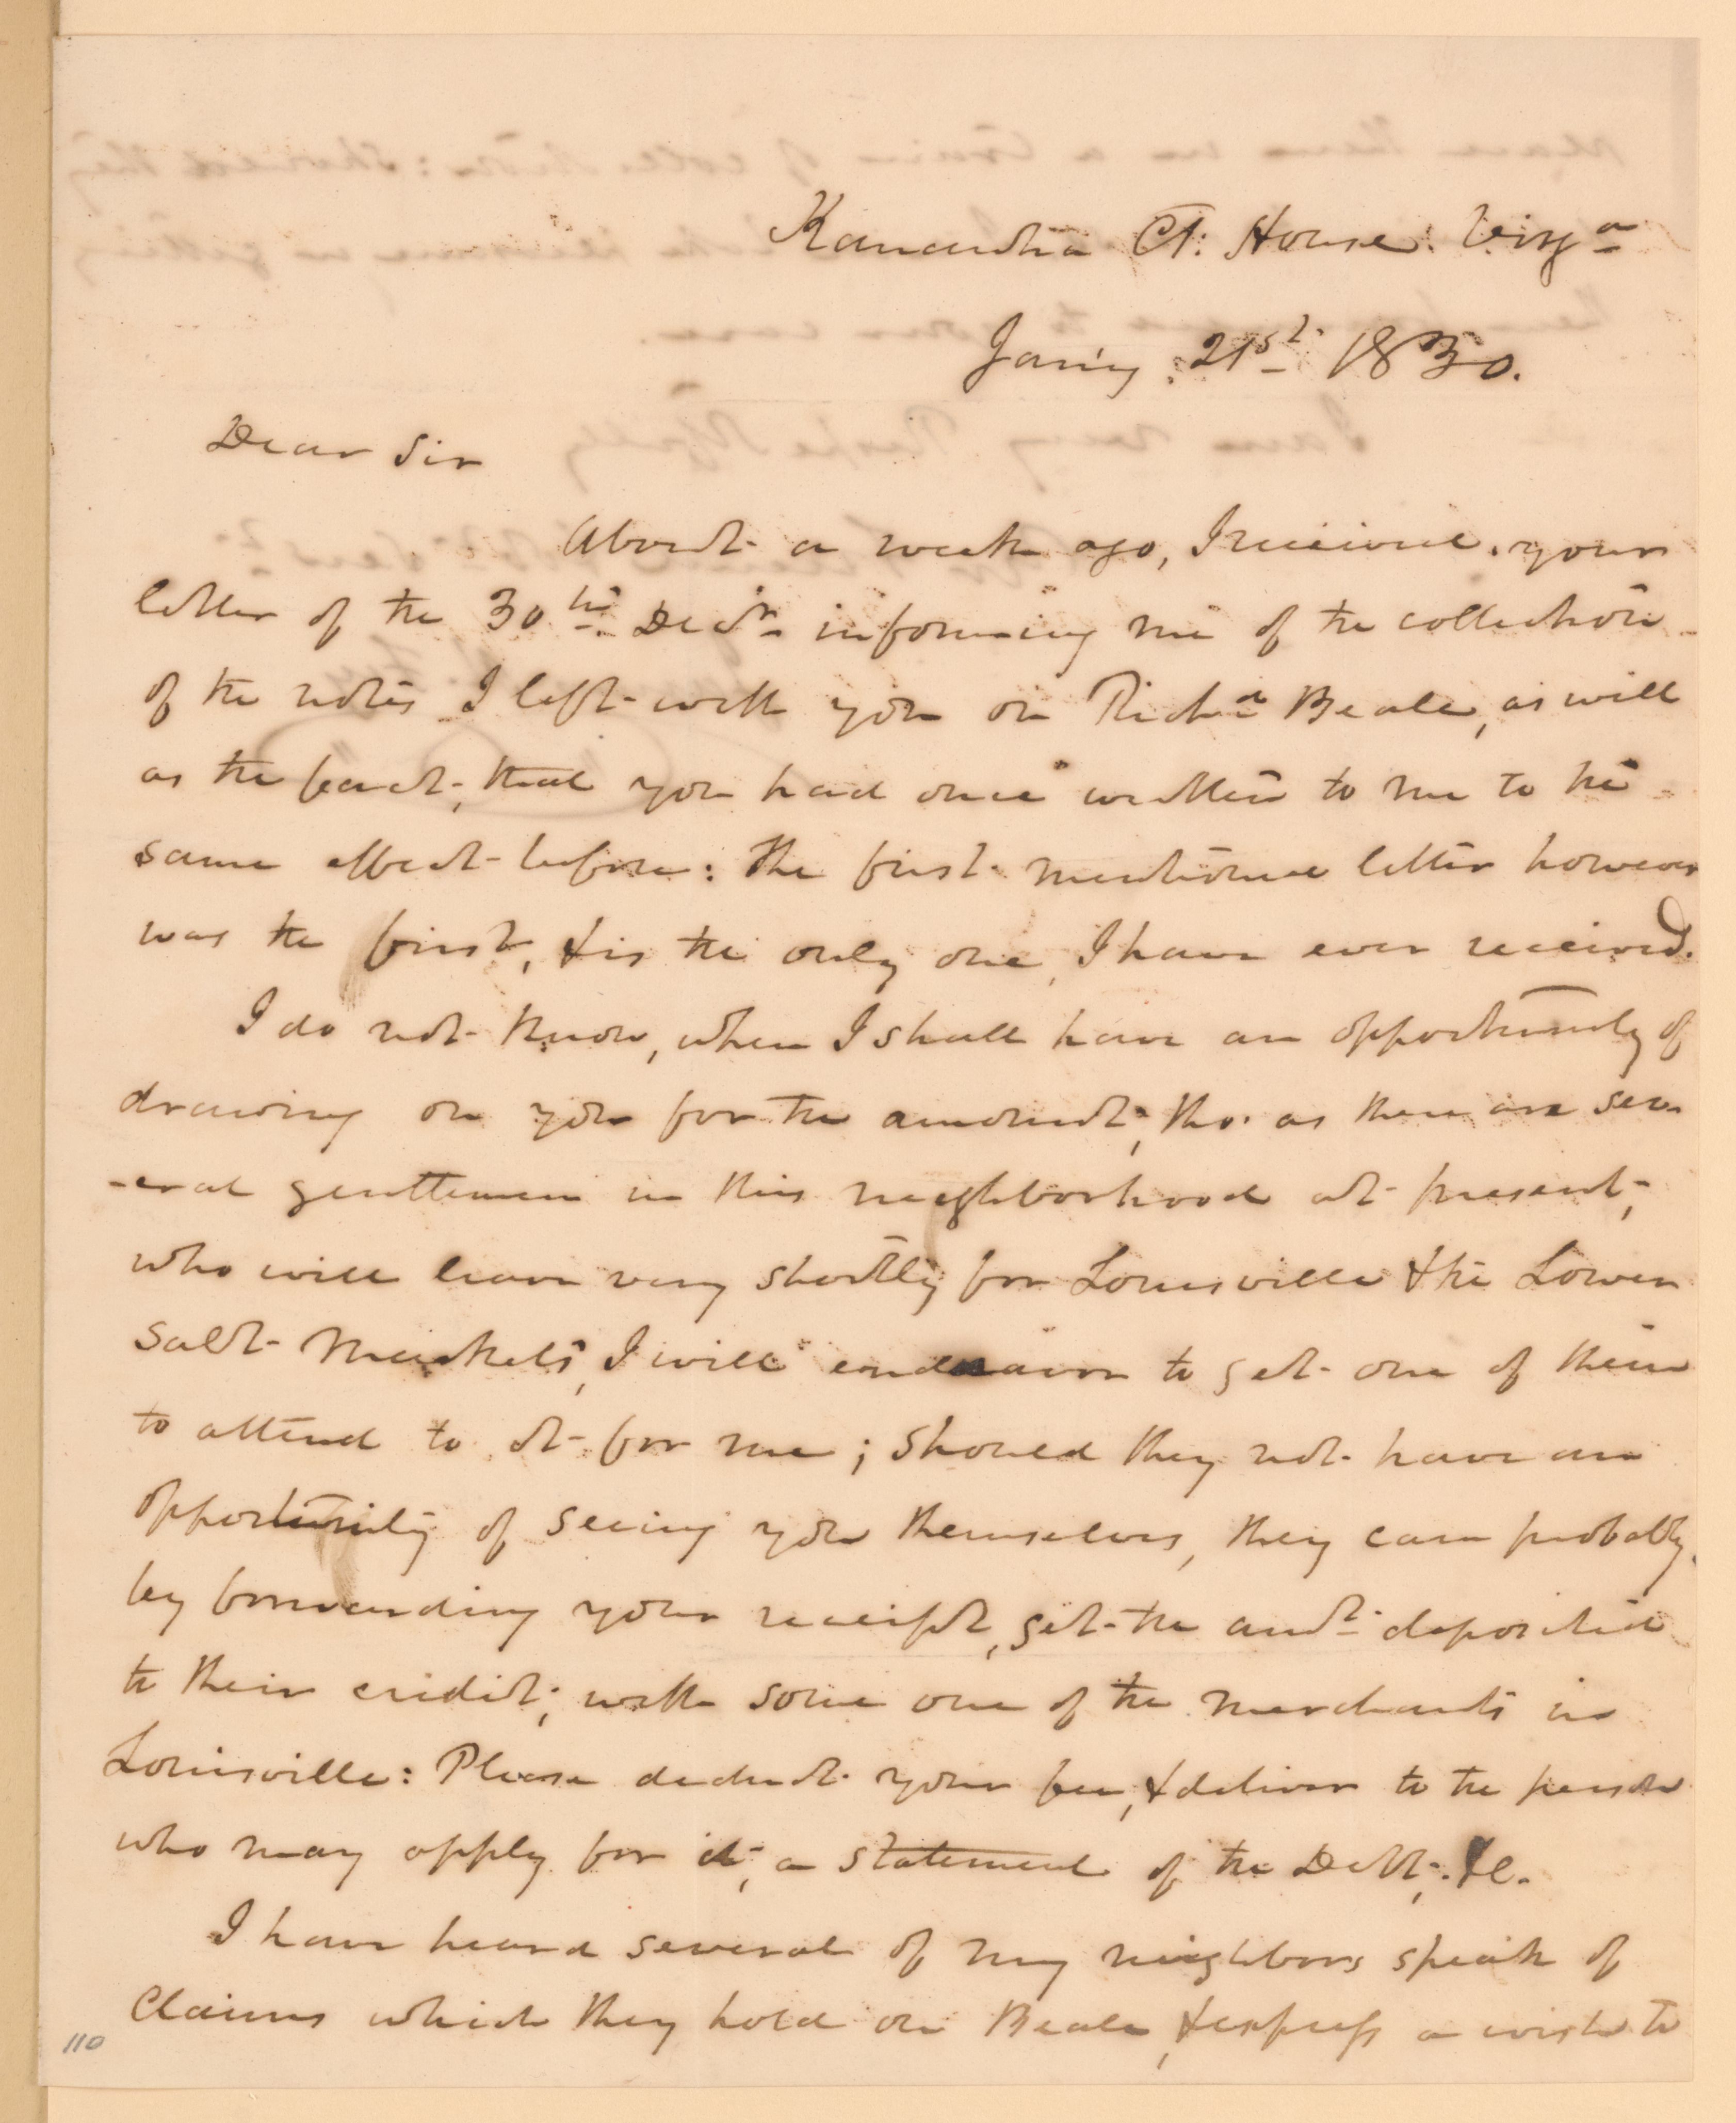 Kanawha Ct. House. Virga
Jany. 21st 1830.
Dear Sir
About a week ago, I received your
letter of the 30th Decr. informing me of the collection
of the notes I left with you on Richd Beale, as well
as the fact, that you had once written to me to the
same effect before: The first mentioned letter however
was the first, & is the only one, I have ever received.
I do not know, when I shall have an opportunity of
drawing on you for the amount; tho. as there are sev-
-eral gentlemen in this neighborhood at present,
who will leave very shortly for Louisville & the Lower
Salt Markets, I will endeavor to get one of them
to attend to it for me; should they not have an
opportunity of seeing you themselves, they can probably
by forwarding your receipt, get the amt. deposited
to their credit, with some one of the merchants in
Louisville: Please deduct your fee, & deliver to the person
who may apply for it, a statement of the Debt, &c.
I have heard several of my neighbors speak of
Claims which they hold on Beale, & express a wish to
110